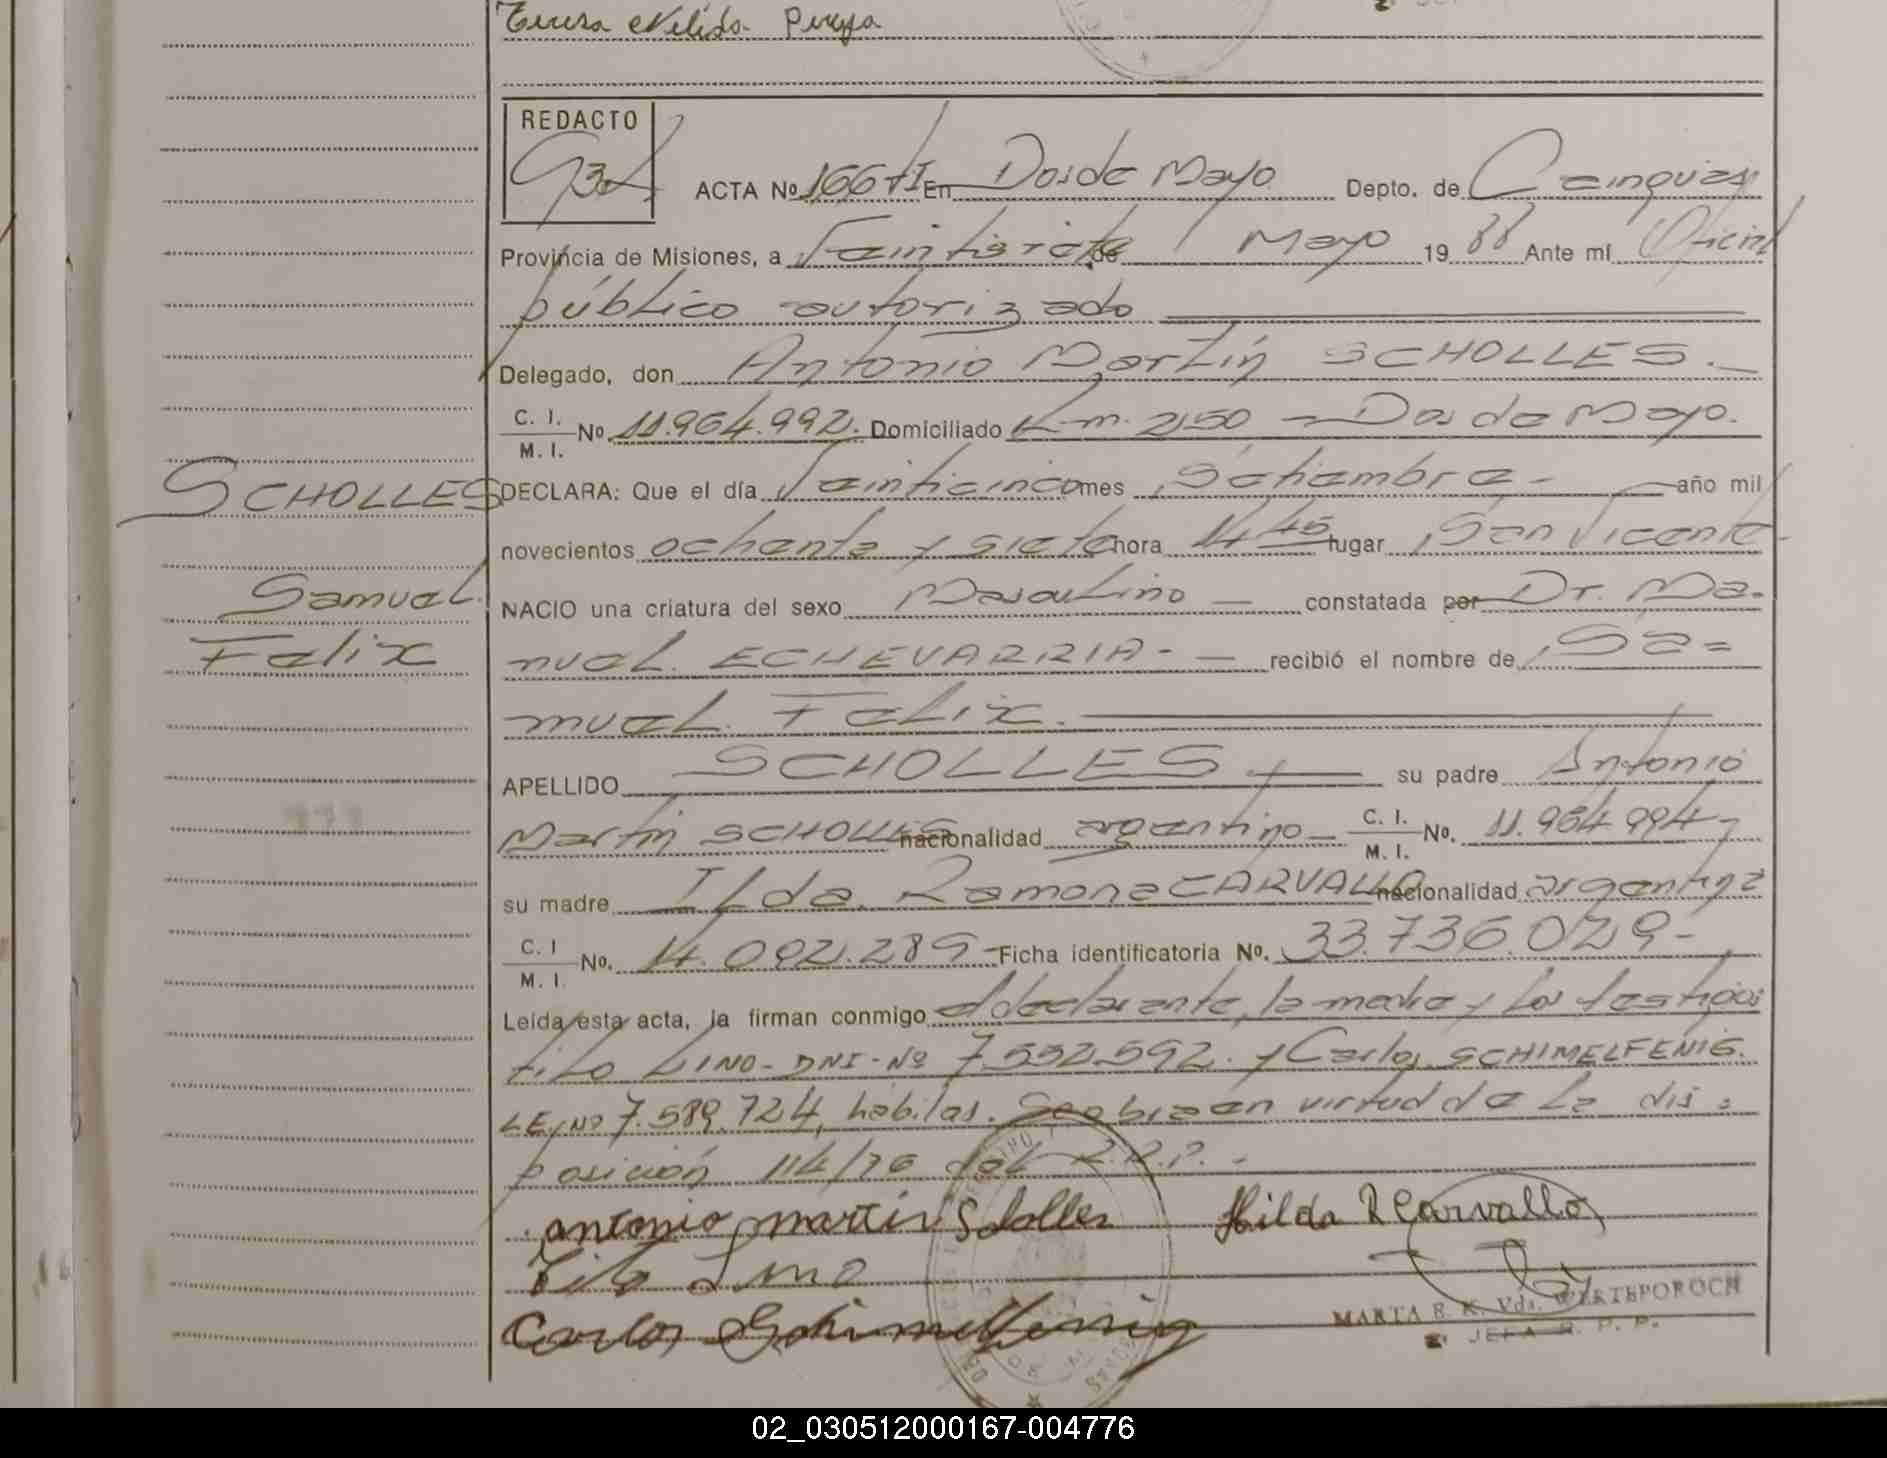 Teresa Nélida Pereyra
REDACTO
ACTA Nº 166 tI En Dos de Mayo Depto. de Cainguás
Provincia de Misiones, a Veintisiete de Mayo 19 88 Ante mí Oficial
público autorizado
Delegado, don Antonio Martín SCHOLLES.
C. I.
M. I. Nº 11.964.992. Domiciliado Km. 250 - Dos de Mayo.
SCHOLLES DECLARA: Que el día Veinticinco mes Setiembre - año mil
novecientos ochenta y siete hora 14 45 lugar San Vicente
Samuel NACIO una criatura del sexo Masculino - constatada por Dr. Ma-
Felix nuel ECHEVARRIA - recibió el nombre de Sa=
muel Felix.
APELLIDO SCHOLLES su padre Antonio
Martín SCHOLLES nacionalidad argentino C. I.
M. I. Nº. 11.964.994-
su madre Ilda Ramona CARVALLO nacionalidad argentina
C. I
M. I. Nº. 14.092.289- Ficha identificatoria Nº. 33.736.029-
Leída esta acta, la firman conmigo el declarante, la madre y los testigos
Tito LINO - DNI - Nº 7.552.592. y Carlos SCHIMELFENIG.
LE. Nº 7.589.724, hábiles. Se labra en virtud de la dis=
posición 114/76 del R.P.P. -
antonio martin Scholles Hilda R Carvallo
Tito Lino
Carlos Schimelfenig
MARTA E. K. Vda. WERTEPOROCH
JEFA R. P. P.
02_030512000167-004776